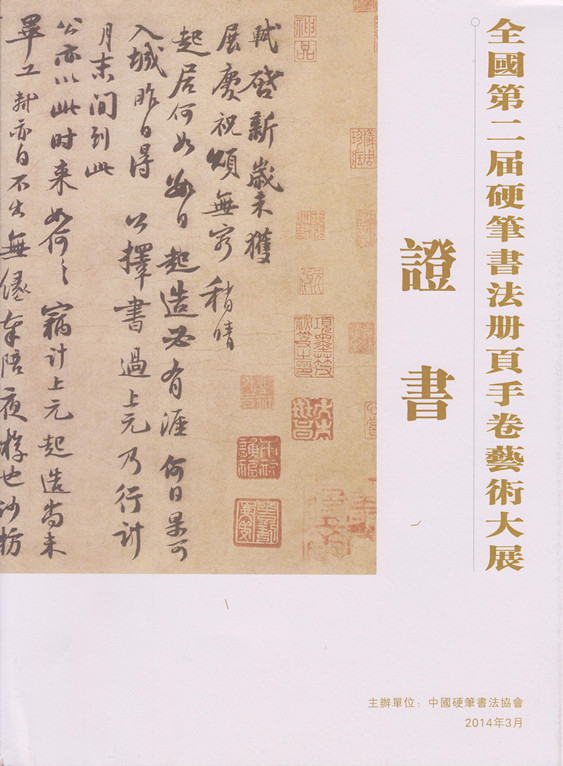 全國第二届硬筆書法册頁手卷藝術大展
證書
軾啓新歲未獲
展慶祝頌無窮稍晴
起居何如數日起造必有涯何日果可
入城昨日得公擇書過上元乃行計
月末間到此
公亦以此时來如何々竊計上元起造尚未
畢工軾亦自不出無緣奉陪夜遊也沙枋
神品
主辦單位：中國硬筆書法協會
2014年3月